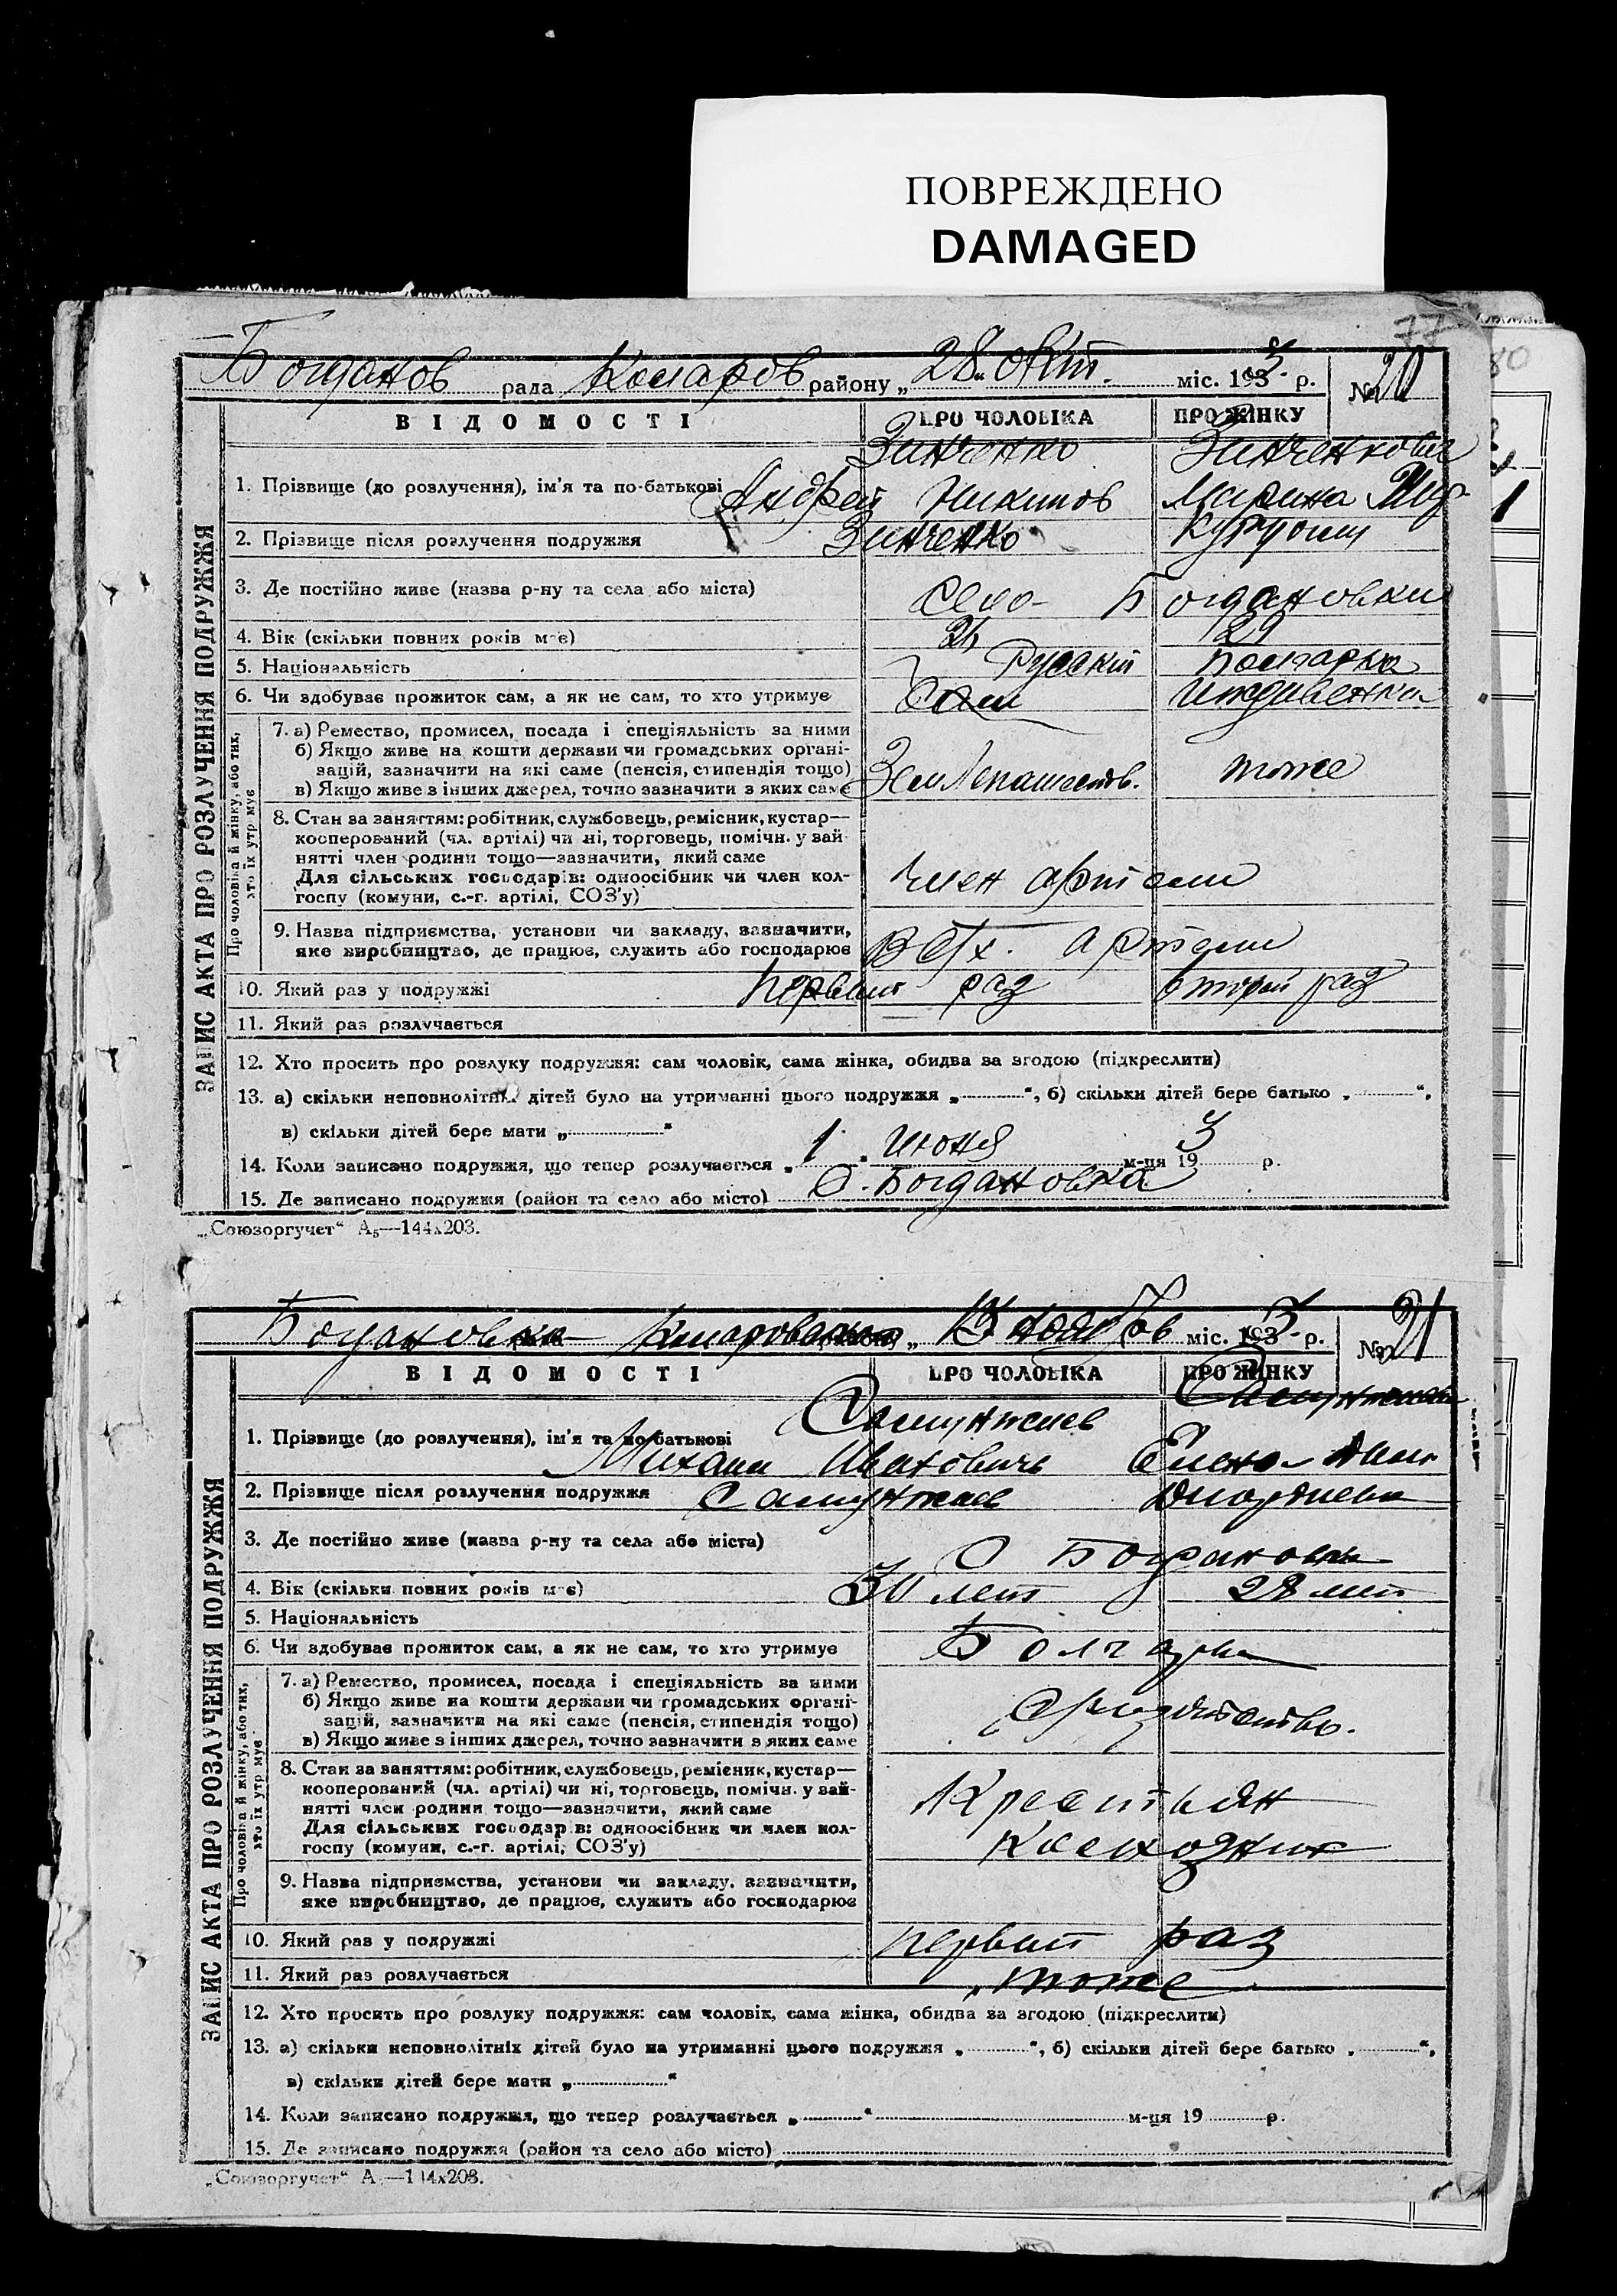 ПОВРЕЖДЕНО
DAMAGED
77
80
Богданов рада Комаров району „28„ Окт. міс. 193 3 р. № 20
ВІДОМОСТІ ПРО ЧОЛОВІКА ПРО ЖІНКУ
Зинченко Зинченкова
1. Прізвище (до розлучення), ім'я та по-батькові Андрей Никитов Марина
2. Прізвище після розлучення подружжя Зинченко
3. Де постійно живе (назва р-ну та села або міста) Село Богдановки
4. Вік (скільки повних років має) 29
5. Національність Русский Болгарка
6. Чи здобуває прожиток сам, а як не сам, то хто утримує Сам Иждивенка
7. а) Ремество, промисел, посада і спеціяльність за ними
б) Якщо живе на кошти держави чи громадських органі-
зацій, зазначити на які саме (пенсія, стипендія тощо)
в) Якщо живе з інших джерел, точно зазначити з яких саме
Землепашеств. тоже
8. Стан за заняттям: робітник, службовець, ремісник, кустар—
косперований (чл. артілі) чи ні, торговець, помічн. у зай-
нятті член родини тощо—зазначити, який саме
Для сільських господарів: одноосібник чи член кол-
госпу (комуни, с.-г. артілі, СОЗ'у)
Член артели
9. Назва підприємства, установи чи закладу, зазначити,
яке виробництво, де працює, служить або господарює
В с/х. артели
10. Який раз у подружжі Первый раз второй раз
11. Який раз розлучається
12. Хто просить про розлуку подружжя: сам чоловік, сама жінка, обидва за згодою (підкреслити)
13. а) скільки неповнолітніх дітей було на утриманні цього подружжя „ “, б) скільки дітей бере батько „ “,
в) скільки дітей бере мати „ “
14. Коли записано подружжя, що тепер розлучається „ 1 “ Июня м-ця 193 р.
15. Де записано подружжя (район та село або місто) С. Богдановка
ЗАПИС АКТА ПРО РОЗЛУЧЕННЯ ПОДРУЖЖЯ
Про чоловіка й жінку, або тих,
хто їх утримує
„Союзоргучет“ А₅—144х203.
Богдановка „ 13 Ноябр міс. 193 3 р. № 21
ВІДОМОСТІ ПРО ЧОЛОВІКА ПРО ЖІНКУ
1. Прізвище (до розлучення), ім'я та по-батькові Михаил Иванович Елена
2. Прізвище після розлучення подружжя
3. Де постійно живе (назва р-ну та села або міста) С Богдановка
4. Вік (скільки повних років має) 30 лет 28 лет
5. Національність
6. Чи здобуває прожиток сам, а як не сам, то хто утримує Болгары
7. а) Ремество, промисел, посада і спеціяльність за ними
б) Якщо живе на кошти держави чи громадських органі-
зацій, зазначити на які саме (пенсія, стипендія тощо)
в) Якщо живе з інших джерел, точно зазначити з яких саме
8. Стан за заняттям: робітник, службовець, ремісник, кустар—
кооперований (чл. артілі) чи ні, торговець, помічн. у зай-
нятті член родини тощо—зазначити, який саме
Для сільських господарів: одноосібник чи член кол-
госпу (комуни, с.-г. артілі, СОЗ'у)
Крестьян
Колхозник
9. Назва підприємства, установи чи закладу, зазначити,
яке виробництво, де працює, служить або господарює
10. Який раз у подружжі первый раз
11. Який раз розлучається тоже
12. Хто просить про розлуку подружжя: сам чоловік, сама жінка, обидва за згодою (підкреслити)
13. а) скільки неповнолітніх дітей було на утриманні цього подружжя „ “, б) скільки дітей бере батько „ “,
в) скільки дітей бере мати „ “
14. Коли записано подружжя, що тепер розлучається „ “ м-ця 19 р.
15. Де записано подружжя (район та село або місто)
ЗАПИС АКТА ПРО РОЗЛУЧЕННЯ ПОДРУЖЖЯ
Про чоловіка й жінку, або тих,
хто їх утримує
„Союзоргучет“ А₅—144х203.